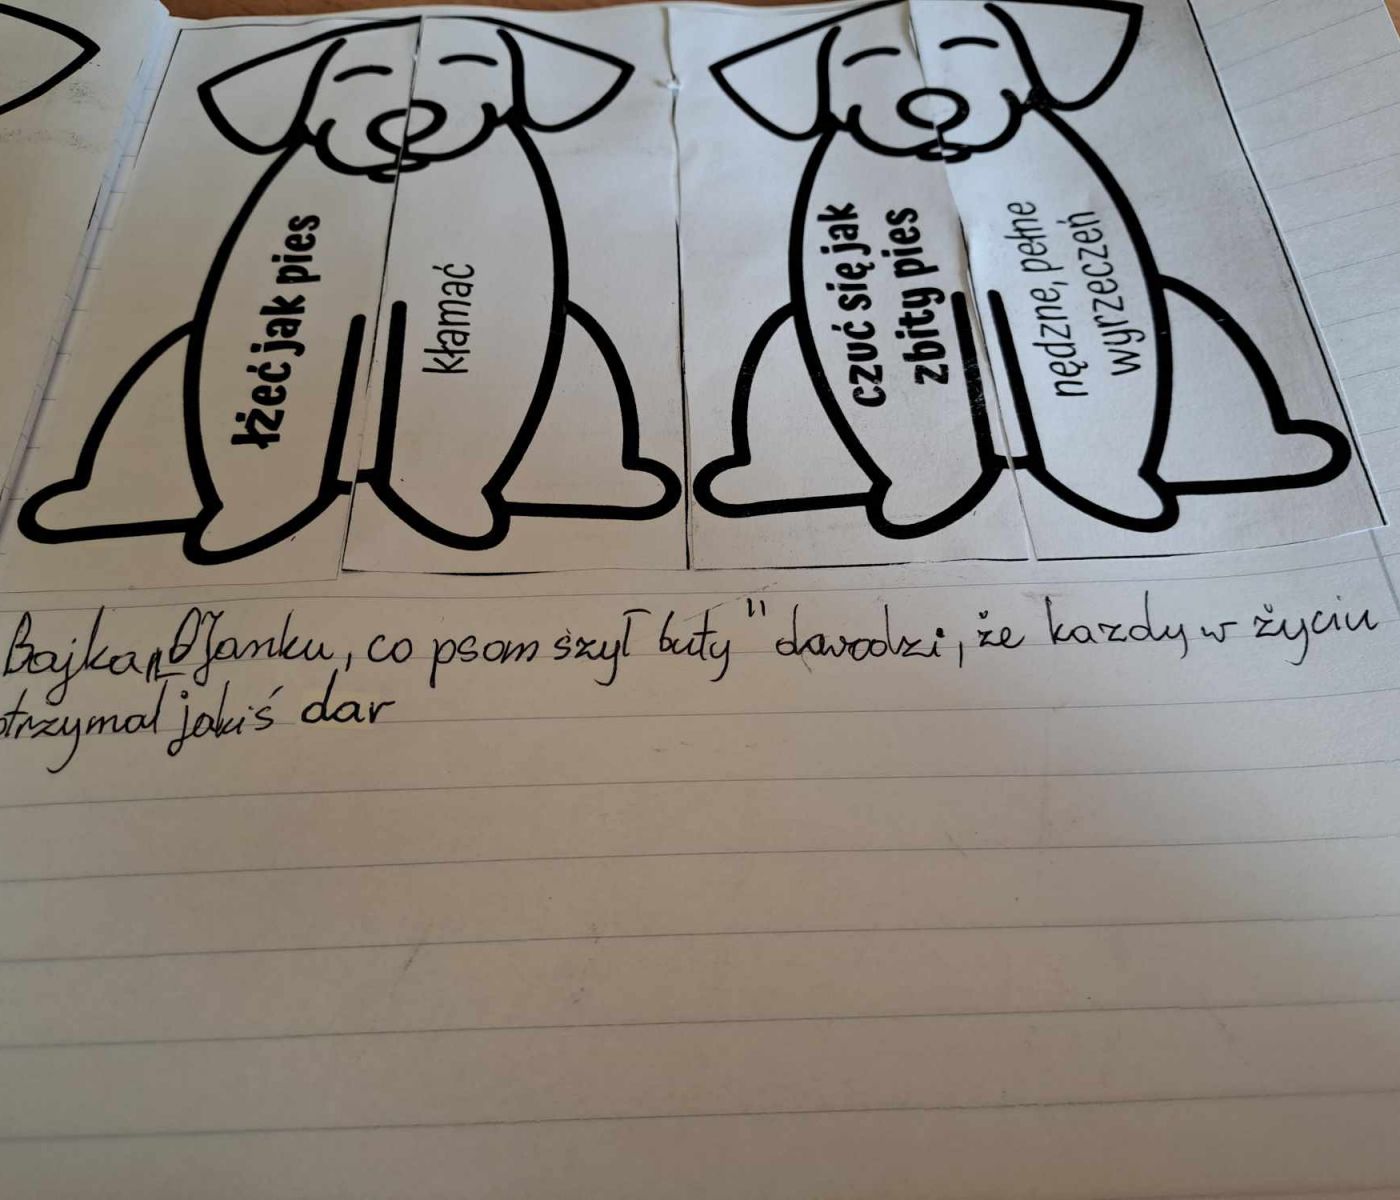 łżeć jak pies
kłamać
czuć się jak
zbity pies
nędzne, pełne
wyrzeczeń
Bajka „O Janku, co psom szył buty" dowodzi, że kazdy w życiu
otrzymal jakiś dar